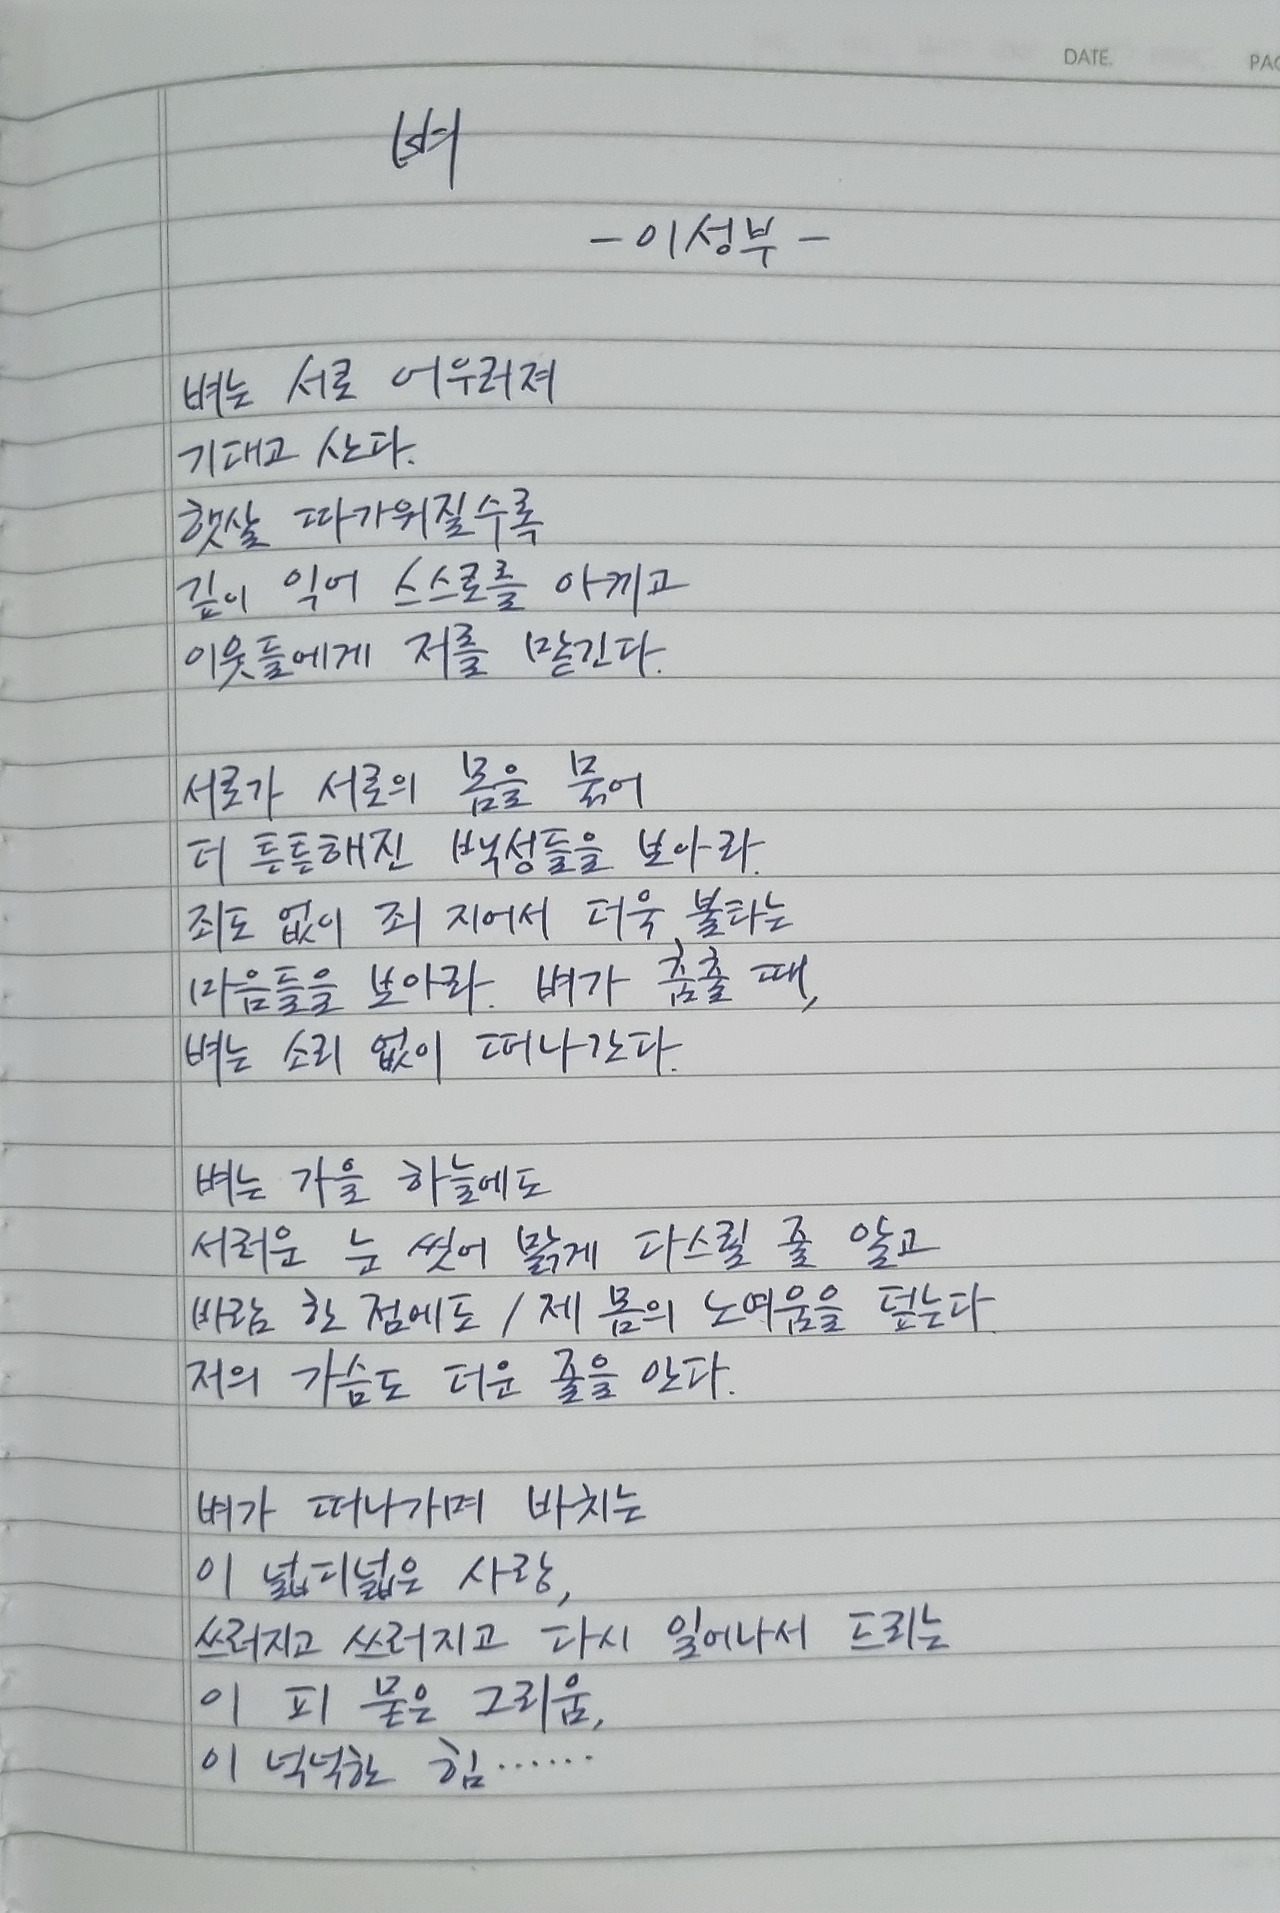 DATE.
PAG
벼
- 이성부 -
벼는 서로 어우러져
기대고 산다.
햇살 따가워질수록
깊이 익어 스스로를 아끼고
이웃들에게 저를 맡긴다.
서로가 서로의 몸을 묶어
더 튼튼해진 백성들을 보아라.
죄도 없이 죄 지어서 더욱 불타는
마음들을 보아라. 벼가 춤출 때,
벼는 소리 없이 떠나간다.
벼는 가을 하늘에도
서러운 눈 씻어 맑게 다스릴 줄 알고
바람 한 점에도 / 제 몸의 노여움을 덮는다
저의 가슴도 더운 줄을 안다.
벼가 떠나가며 바치는
이 넓디넓은 사랑,
쓰러지고 쓰러지고 다시 일어나서 드리는
이 피 묻은 그리움,
이 넉넉한 힘……